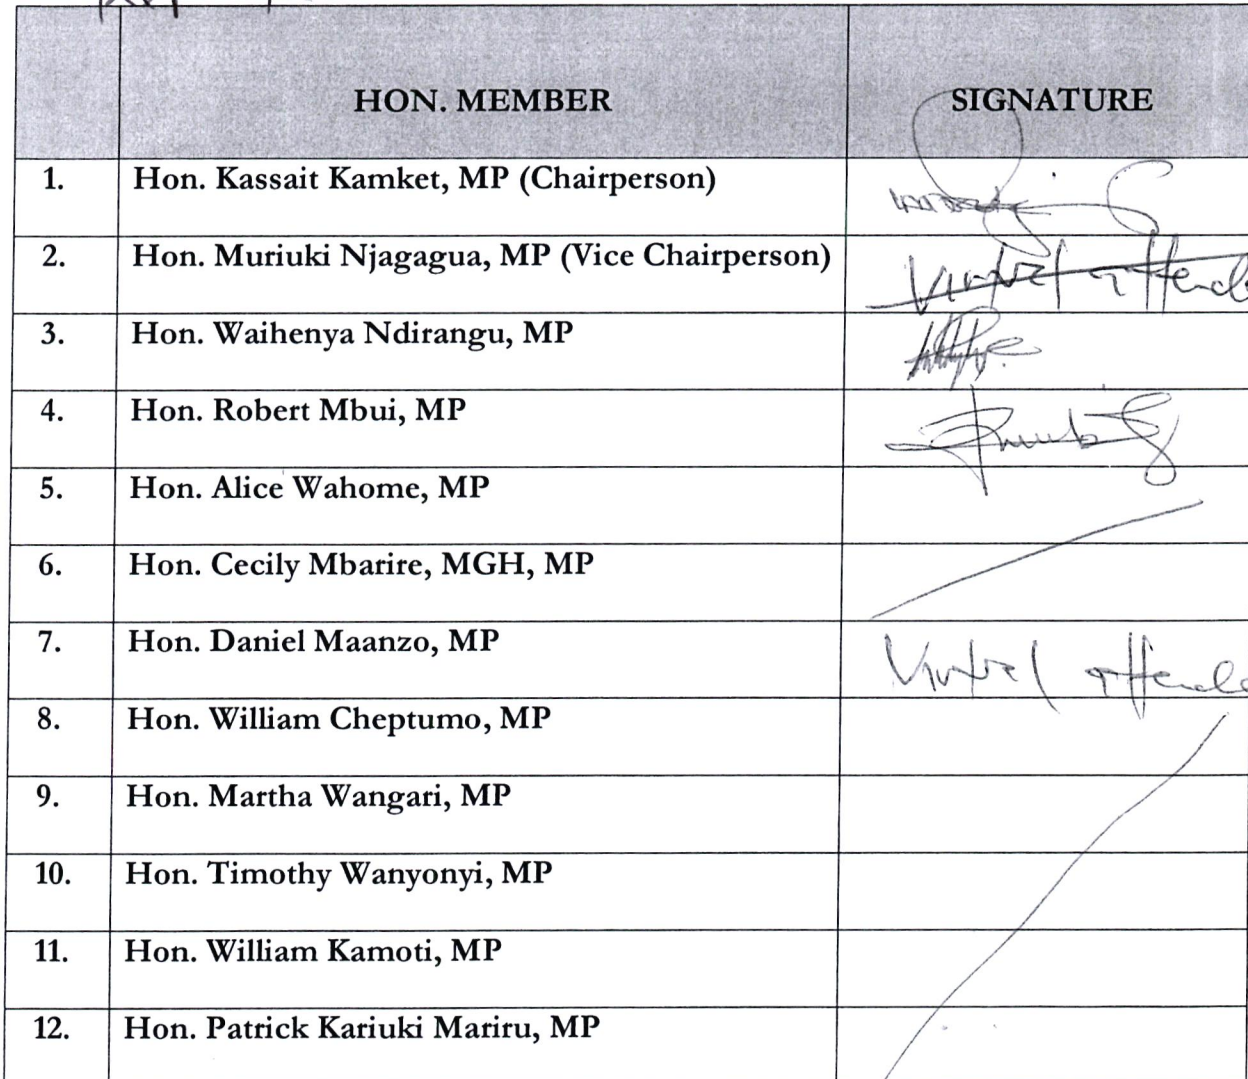 HON. MEMBER SIGNATURE
1. Hon. Kassait Kamket, MP (Chairperson)
2. Hon. Muriuki Njagagua, MP (Vice Chairperson)
3. Hon. Waihenya Ndirangu, MP
4. Hon. Robert Mbui, MP
5. Hon. Alice Wahome, MP
6. Hon. Cecily Mbarire, MGH, MP
7. Hon. Daniel Maanzo, MP
8. Hon. William Cheptumo, MP
9. Hon. Martha Wangari, MP
10. Hon. Timothy Wanyonyi, MP
11. Hon. William Kamoti, MP
12. Hon. Patrick Kariuki Mariru, MP